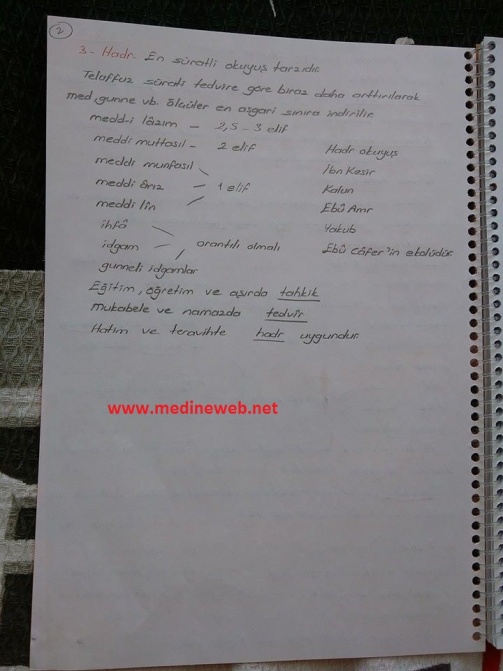 2
3- Hadr- En süratli okuyuş tarzıdır.
Telaffuz sürati tedvire göre biraz daha arttırılarak
med, gunne vb. ölçüler en asgari sınıra indirilir.
medd-i lâzım - 2,5 - 3 elif
meddi muttasıl - 2 elif
meddi munfasıl
meddi ârız - 1 elif
meddi lîn
ihfâ
idgam - orantılı olmalı
gunneli idgamlar
Hadr okuyuş
İbn Kesir
Kalun
Ebû Amr
Yakub
Ebû Câfer'in ekolüdür.
Eğitim, öğretim ve aşırda tahkik
Mukabele ve namazda tedvîr
Hatim ve teravihte hadr uygundur.
www.medineweb.net